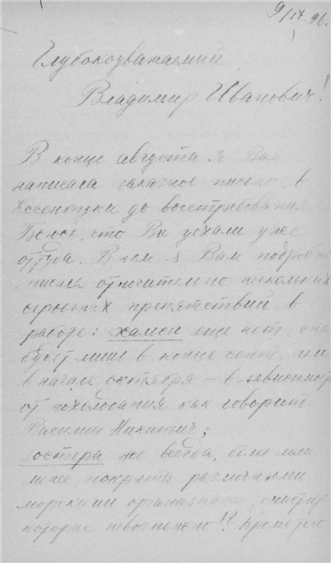 9/IX 96.
Глубокоуважаемый
Владимир Иванович!
В конце августа я Вам
написала заказное письмо в
Ессентуки до востребования
что Вы уехали уже
оттуда. В нем я Вам подробно
писала относительно нескольких
серьезных препятствий в
работе: хамсы еще нет, она
будет лишь в конце сент. или
в начале октября — в зависимости
от похолодания как говорит
Василий Никитич;
остреа же всегда, более или
менее, покрыта различными
морскими организмами, счистить
которые невозможно!? Кроме того